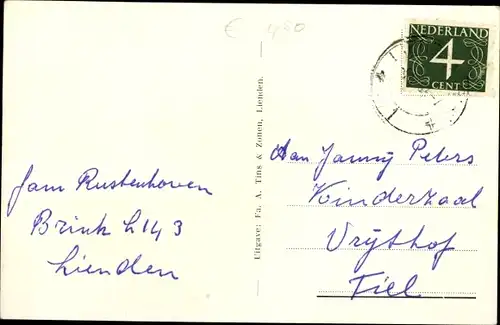 € 4,50
NEDERLAND
4
CENT
Uitgave: Fa. A. Tins & Zonen, Lienden.
Aan Janny Peters
Kinderzaal
Vrijthof
Tiel
Jam Rustenhoven
Brink L 143
Lienden